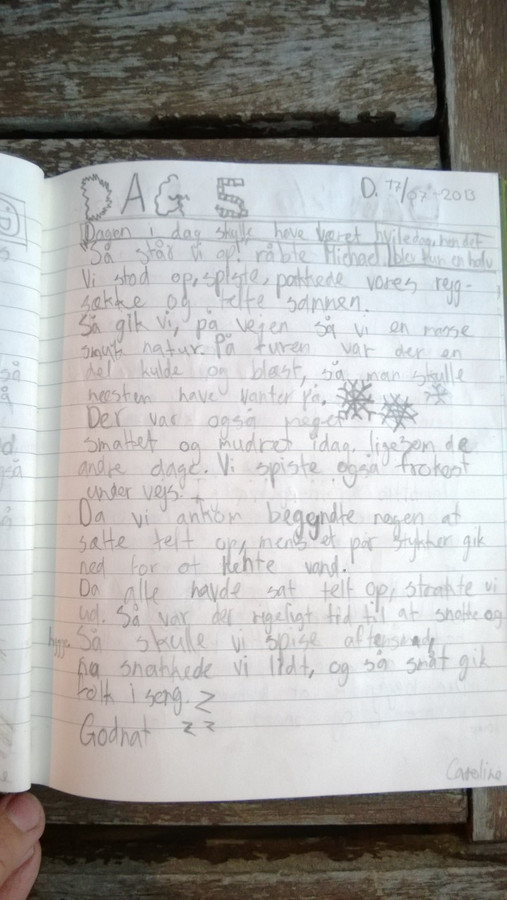 DAG 5 D. 17/07-2013
Dagen i dag skulle have været hviledag, men det blev kun en halv
"Så står vi op!" råbte Michael
Vi stod op, spiste, pakkede vores ryg-
sække og telte sammen.
Så gik vi, på vejen så vi en masse
smuk natur. På turen var der en
del kulde og blæst, så man skulle
næsten have vanter på.
Der var også meget
smattet og mudret idag, ligesom de
andre dage. Vi spiste også frokost
undervejs.
Da vi ankom begyndte nogen at
sætte telt op, mens et par stykker gik
ned for at hente vand.
Da alle havde sat telt op, strakte vi
ud. Så var der rigeligt tid til at snakke og
hygge
Så skulle vi spise aftensmad,
snakkede vi lidt, og så småt gik
folk i seng. Z
Godnat z z
Caroline